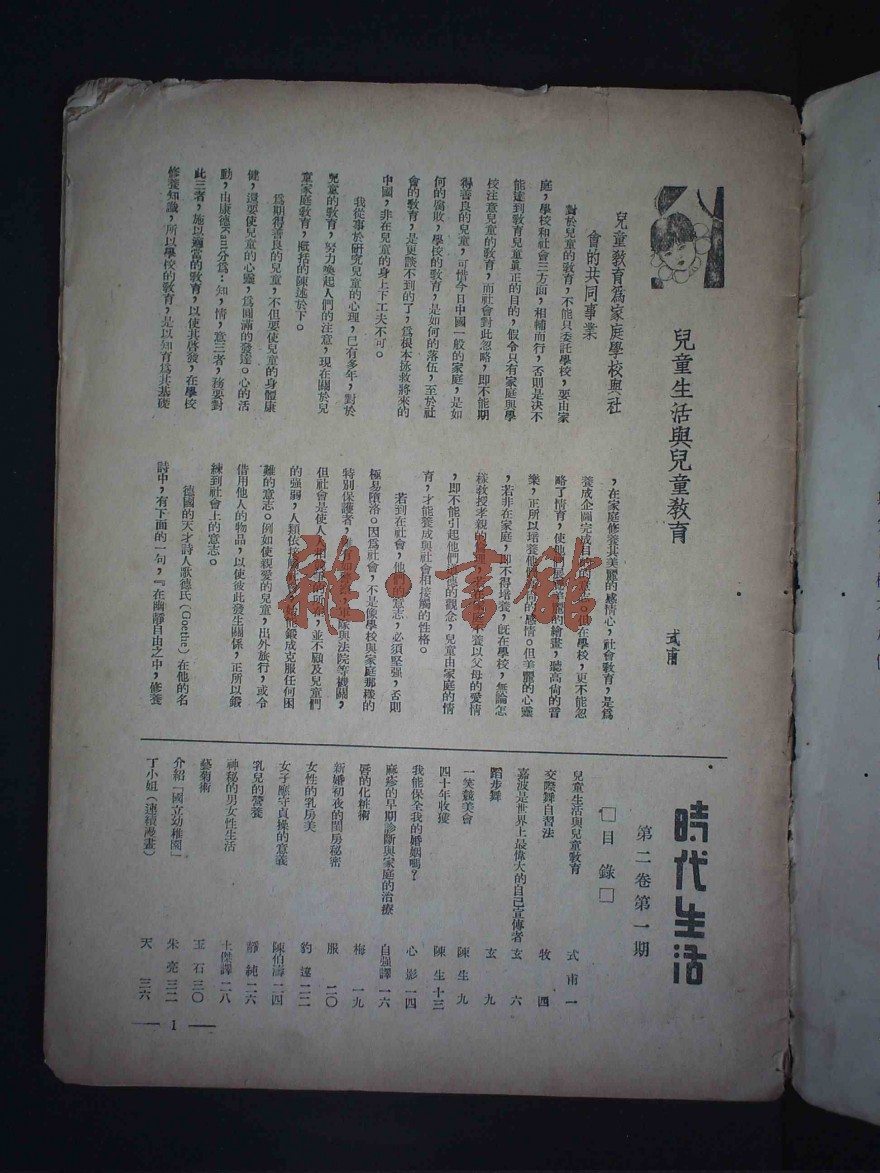 兒童生活與兒童教育
式甫
兒童教育為家庭學校與社
會的共同事業
對於兒童的教育，不能只委託學校，要由家
庭，學校和社會三方面，相輔而行，否則是決不
能達到教育兒童眞正的目的，假令只有家庭與學
校注意兒童的教育，而社會對此忽略，即不能期
得善良的兒童，可惜今日中國一般的家庭，是如
何的腐敗，學校的教育，是如何的落伍，至於社
會的教育，是更談不到的了，爲根本拯救將來的
中國，非在兒童的身上下工夫不可。
我從事於研究兒童的心理，已有多年，對於
兒童的教育，努力喚起人們的注意，現在關於兒
童家庭教育，概括的陳述於下。
爲期得善良的兒童，不但要使兒童的身體康
健，還要使兒童的心靈，爲圓滿的發達。心的活
動，由康德Kant三分爲：知，情，意三者，務要對
此三者，施以適當的教育，以使其啓發，在學校
修養知識，所以學校的教育，是以知育爲其基礎
，在家庭修養其美麗的感情心，社會教育，是爲
養成企圖完成目的，但在學校，更不能忽
略了情育，使他的繪畫，聽高尙的音
樂，正所以培養他的感情。但美麗的心靈
，若非在家庭，即不得培養，旣在學校，無論怎
樣教授孝親的養以父母的愛情
，即不能引起他們孝他的觀念，兒童由家庭的情
育，才能養成與社會相接觸的性格。
若到在社會，他們的意志，必須堅强，否則
極易墮落。因爲社會，不是像學校與家庭那樣的
特別保護者，與法院等機關，
但社會是使人並不顧及兒童們
的强弱，人類依能鍛成克服任何困
難的意志。例如使親愛的兒童，出外旅行，或令
借用他人的物品，以使彼此發生關係，正所以鍛
練到社會上的意志。
德國的天才詩人歌德氏（Goethe）在他的名
詩中，有下面的一句，『在幽靜自由之中，修養
時代生活
第二卷第一期
□目錄□
兒童生活與兒童教育 式甫 一
交際舞自習法 牧 四
嘉波是世界上最偉大的自己宣傳者 玄 六
踏步舞 玄 九
一笑競美會 陳生 九
四十年收獲 陳生 十三
我能保全我的婚姻嗎？ 心影 一四
麻疹的早期診斷與家庭的治療 自强譯 一六
唇的化粧術 梅 一九
新婚初夜的閨房秘密 服 二〇
女性的乳房美 豹遠 二二
女子應守貞操的意義 陳伯濤 二四
乳兒的營養 靜純 二六
神秘的男女性生活 士傑譯 二八
藝菊術 玉石 三〇
介紹「國立幼稚園」 朱亮 三二
丁小姐（連續漫畫） 天 三六
— 1 —
雅·書館